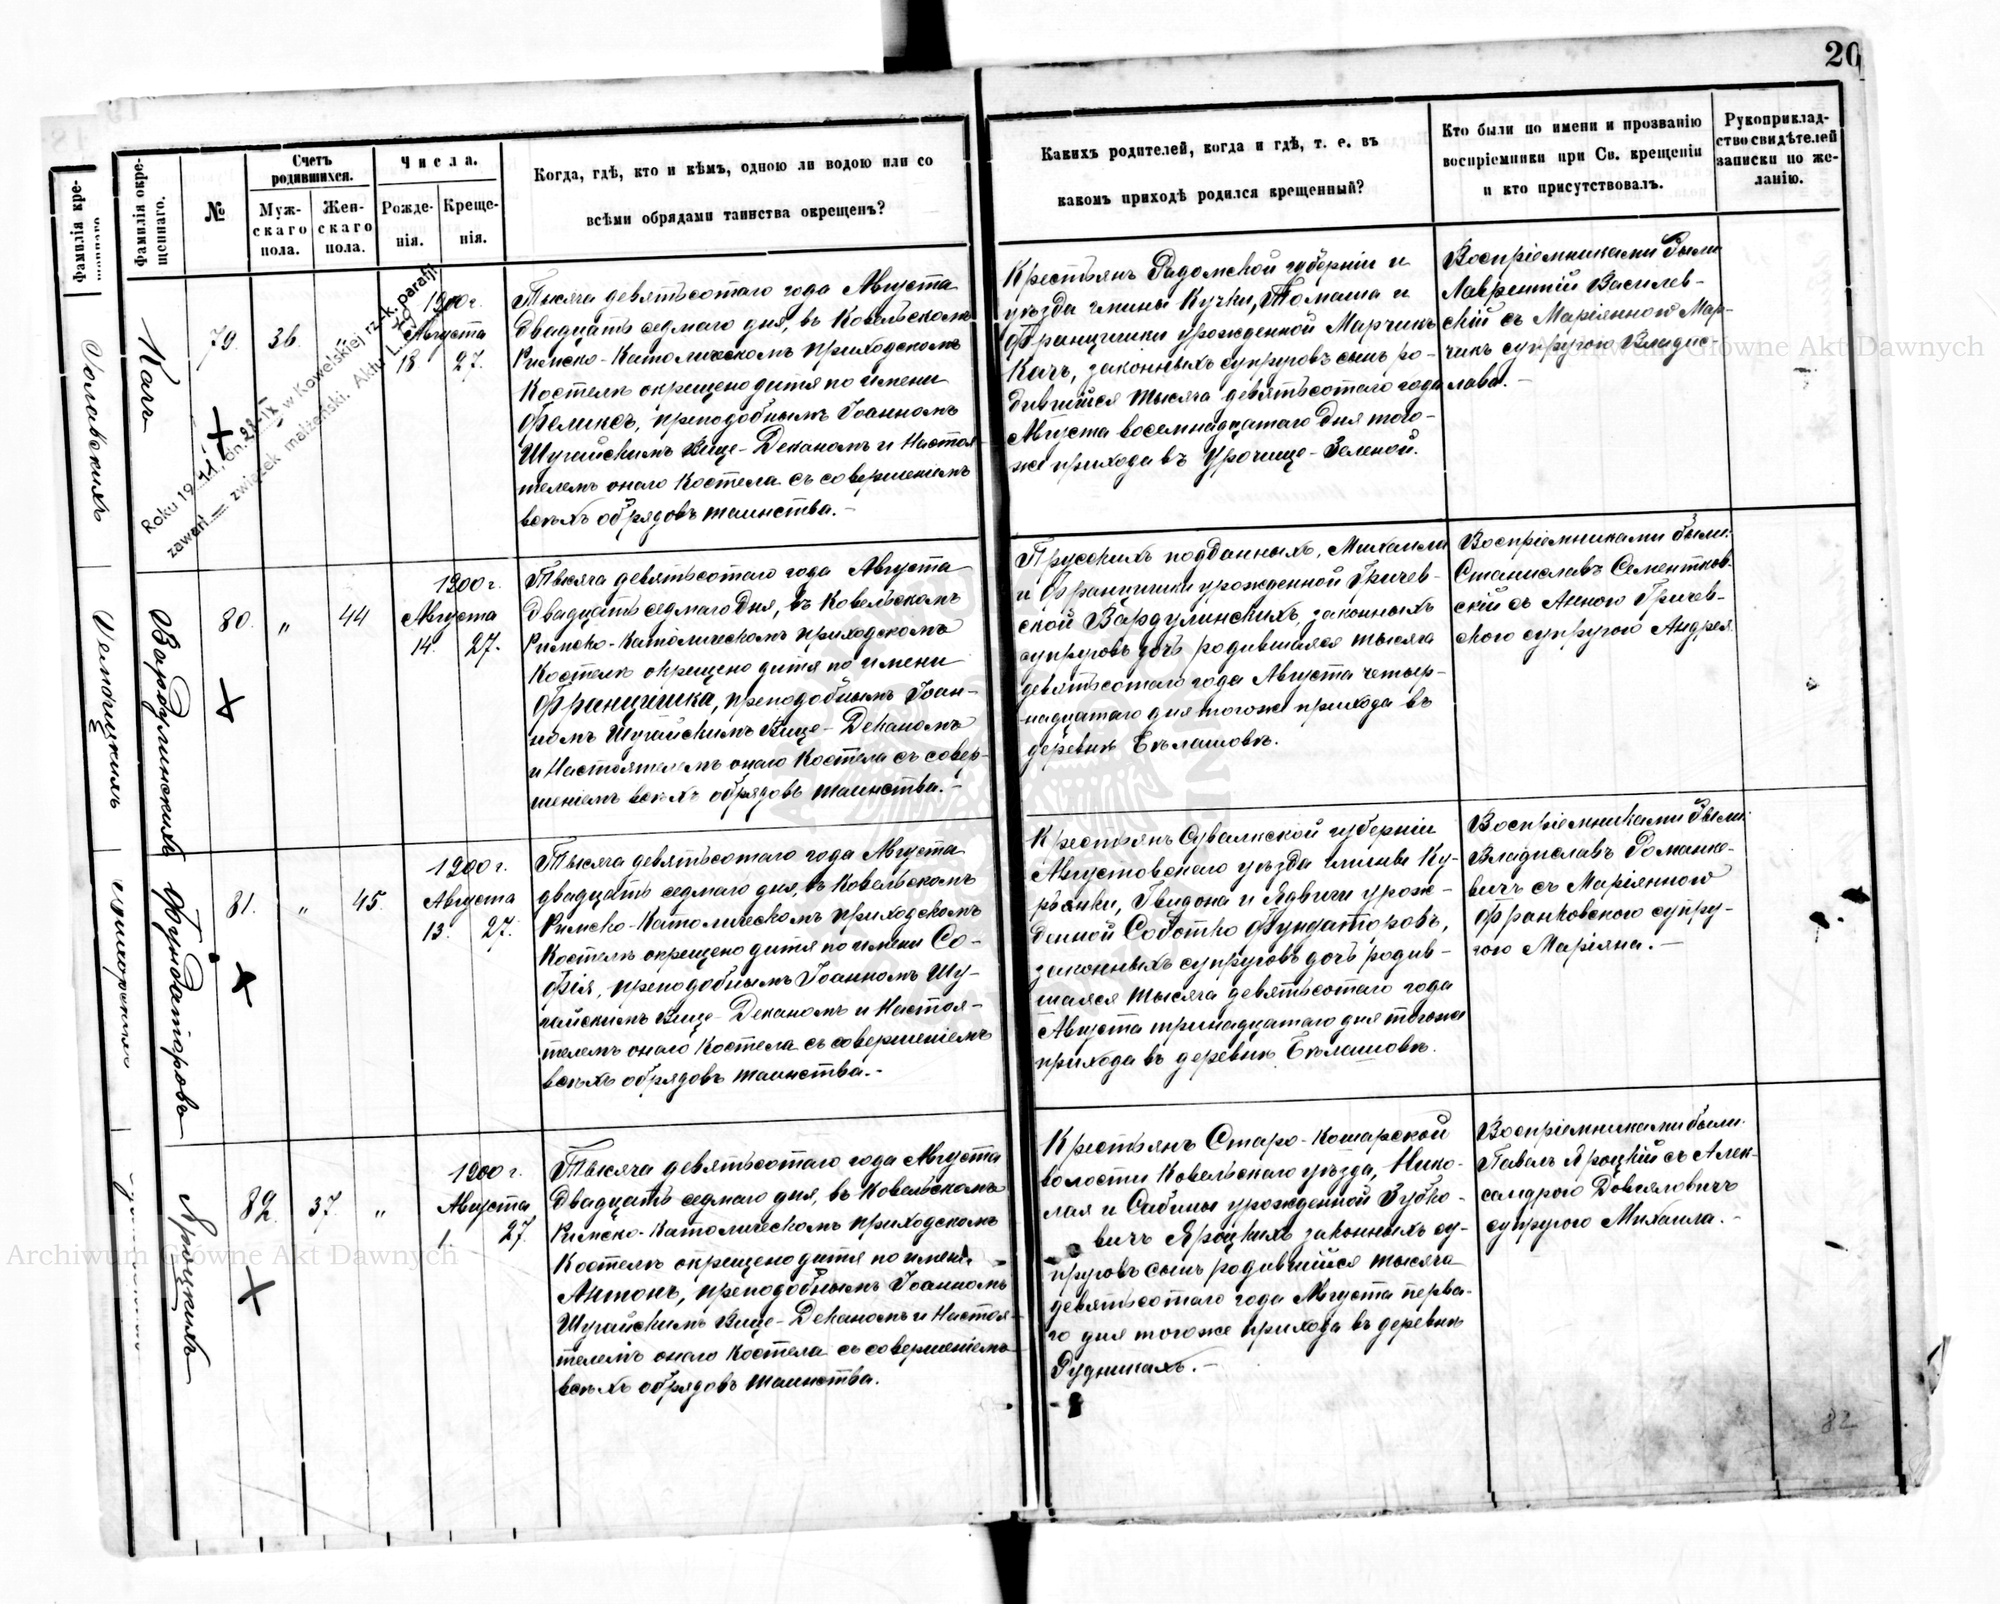 20
Фамилія кре-
Фамилія окре-
щеннаго.
№
Счетъ
родившихся.
Муж-
скаго
пола.
Жен-
скаго
пола.
Числа.
Рожде-
нія.
Креще-
нія.
Когда, гдѣ, кто и кѣмъ, одною ли водою или со
всѣми обрядами таинства окрещенъ?
Какихъ родителей, когда и гдѣ, т. е. въ
какомъ приходѣ родился крещенный?
Кто были по имени и прозванію
воспріемники при Св. крещеніи
и кто присутствовалъ.
Рукоприклад-
ство свидѣтелей
записки по же-
ланію.
Качъ
79.
36.
"
1900 г.
Августа
18
27.
Roku 1911, dn. 28-IX w Kowelskiej rz.-k. parafji
zawarł — związek małżeński. Aktu L.
Тысяча девятьсотаго года Августа
двадцать седмаго дня, въ Ковельскомъ
Римско-Католическомъ приходскомъ
Костелѣ окрещено дитя по имени
Феликсъ, преподобнымъ Іоанномъ
Шугайскимъ Вице-Деканомъ и Настоя-
телемъ онаго Костела съ совершеніемъ
всѣхъ обрядовъ таинства.-
Крестьянъ Радомской губерніи и
уѣзда гмины Кучки, Томаша и
Францишки урожденной Марчикъ
Качъ, законныхъ супруговъ сынъ ро-
дившійся тысяча девятьсотаго года
Августа восемнадцатаго дня того-
же прихода въ Урочище-Зеленой.
Воспріемниками были
Лаврентій Василев-
скій съ Маріянною Мар-
чикъ супругою Владис-
лава.-
Вардулинскихъ
80.
"
44
1900 г.
Августа
14.
27.
Тысяча девятьсотаго года Августа
двадцать седмаго дня, въ Ковельскомъ
Римско-Католическомъ приходскомъ
Костелѣ окрещено дитя по имени
Францишка, преподобнымъ Іоан-
номъ Шугайскимъ Вице-Деканомъ
и Настоятелемъ онаго Костела съ совер-
шеніемъ всѣхъ обрядовъ таинства.-
Прусскихъ подданныхъ, Михаила
и Францишки урожденной Гричев-
ской Вардулинскихъ, законныхъ
супруговъ дочь родившаяся тысяча
девятьсотаго года Августа четыр-
надцатаго дня тогоже прихода въ
деревнѣ Бѣлашовѣ.
Воспріемниками были:
Станиславъ Сементков-
скій съ Анною Гричев-
скою супругою Андрея.
Фундаторовъ
81.
"
45.
1900 г.
Августа
13.
27.
Тысяча девятьсотаго года Августа
двадцать седмаго дня, въ Ковельскомъ
Римско-Католическомъ приходскомъ
Костелѣ окрещено дитя по имени Со-
фія, преподобнымъ Іоанномъ Шу-
гайскимъ Вице-Деканомъ и Настоя-
телемъ онаго Костела съ совершеніемъ
всѣхъ обрядовъ таинства.-
Крестьянъ Сувалкской губерніи
Августовскаго уѣзда гмины Ку-
рьянки, Гвидона и Ядвиги урож-
денной Соботко Фундаторовъ,
законныхъ супруговъ дочь родив-
шаяся тысяча девятьсотаго года
Августа тринадцатаго дня тогоже
прихода въ деревнѣ Бѣлашовѣ.
Воспріемниками были:
Владиславъ Романо-
вичъ съ Маріянною
Франковскою супру-
гою Маріяна.-
Яроцкихъ
82.
37.
"
1900 г.
Августа
1.
27.
Тысяча девятьсотаго года Августа
двадцать седмаго дня, въ Ковельскомъ
Римско-Католическомъ приходскомъ
Костелѣ окрещено дитя по имени
Антонъ, преподобнымъ Іоанномъ
Шугайскимъ Вице-Деканомъ и Настоя-
телемъ онаго Костела съ совершеніемъ
всѣхъ обрядовъ таинства.
Крестьянъ Старо-Кошарской
волости Ковельскаго уѣзда, Нико-
лая и Сабины урожденной Зубко-
вичъ Яроцкихъ законныхъ су-
пруговъ сынъ родившійся тысяча
девятьсотаго года Августа перва-
го дня тогоже прихода въ деревнѣ
Рудникахъ.-
Воспріемниками были:
Павелъ Яроцкій съ Алек-
сандрою Довяловичъ
супругою Михаила.-
82
Archiwum Główne Akt Dawnych
Archiwum Główne Akt Dawnych